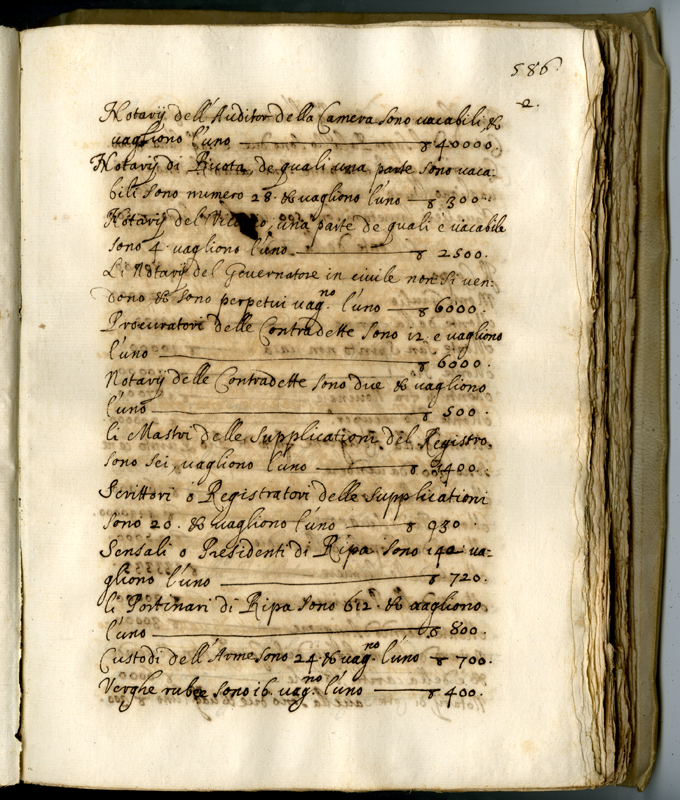 586.
2.
Notarij dell'Auditor della Camera sono vacabili, &
vagliono l'uno ▽ 40000.
Notarij di Ruota, de quali una parte sono vaca:
bili sono numero 28. & vagliono l'uno ▽ 300.
Notarij del, una parte de quali e vacabile
sono 4. vagliono l'uno ▽ 2500.
Li Notarij del Governatore in civile non si ven:
dono & sono perpetui vag.no l'uno ▽ 6000.
Procuratori delle Contradette sono 12. e vagliono
l'uno ▽ 6000.
Notarij delle Contradette sono due & vagliono
l'uno ▽ 500.
li Mastri delle supplicationi del Registro,
sono sei, vagliono l'uno ▽
Scrittori o Registratori delle supplicationi
sono 20. & vagliono l'uno ▽ 930.
Sensali o Presidenti di Ripa sono 140. va:
gliono l'uno ▽ 720.
li Portinari di Ripa sono 612. & vagliono
l'uno ▽ 800.
Custodi dell'Arme sono 24. & vag.no l'uno ▽ 700.
Verghe rubee sono 16. vag.no l'uno ▽ 400.